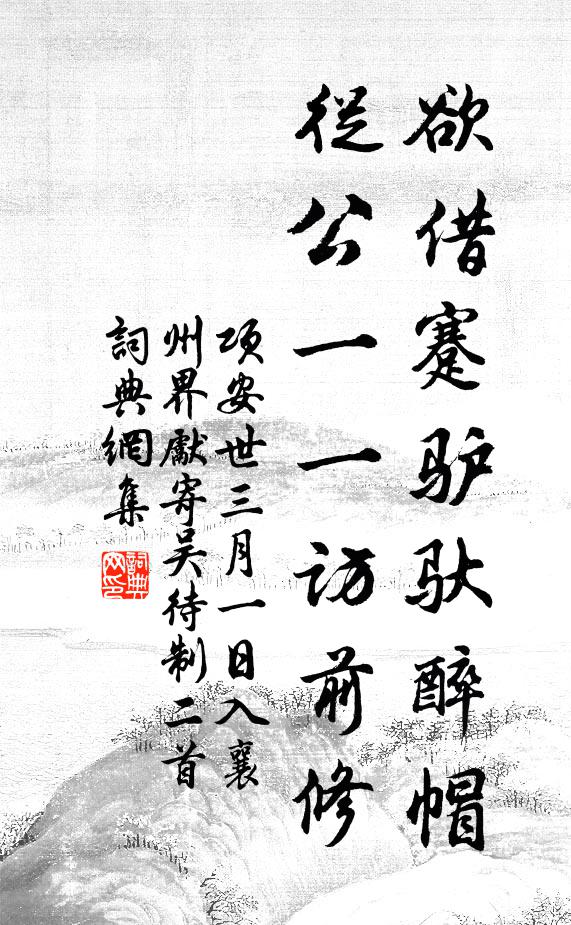 欲借蹇驴驮醉帽
從公一一访前修
项安世三月一日入襄
州界獻寄吴待制二首
詞典網集
詞典網印